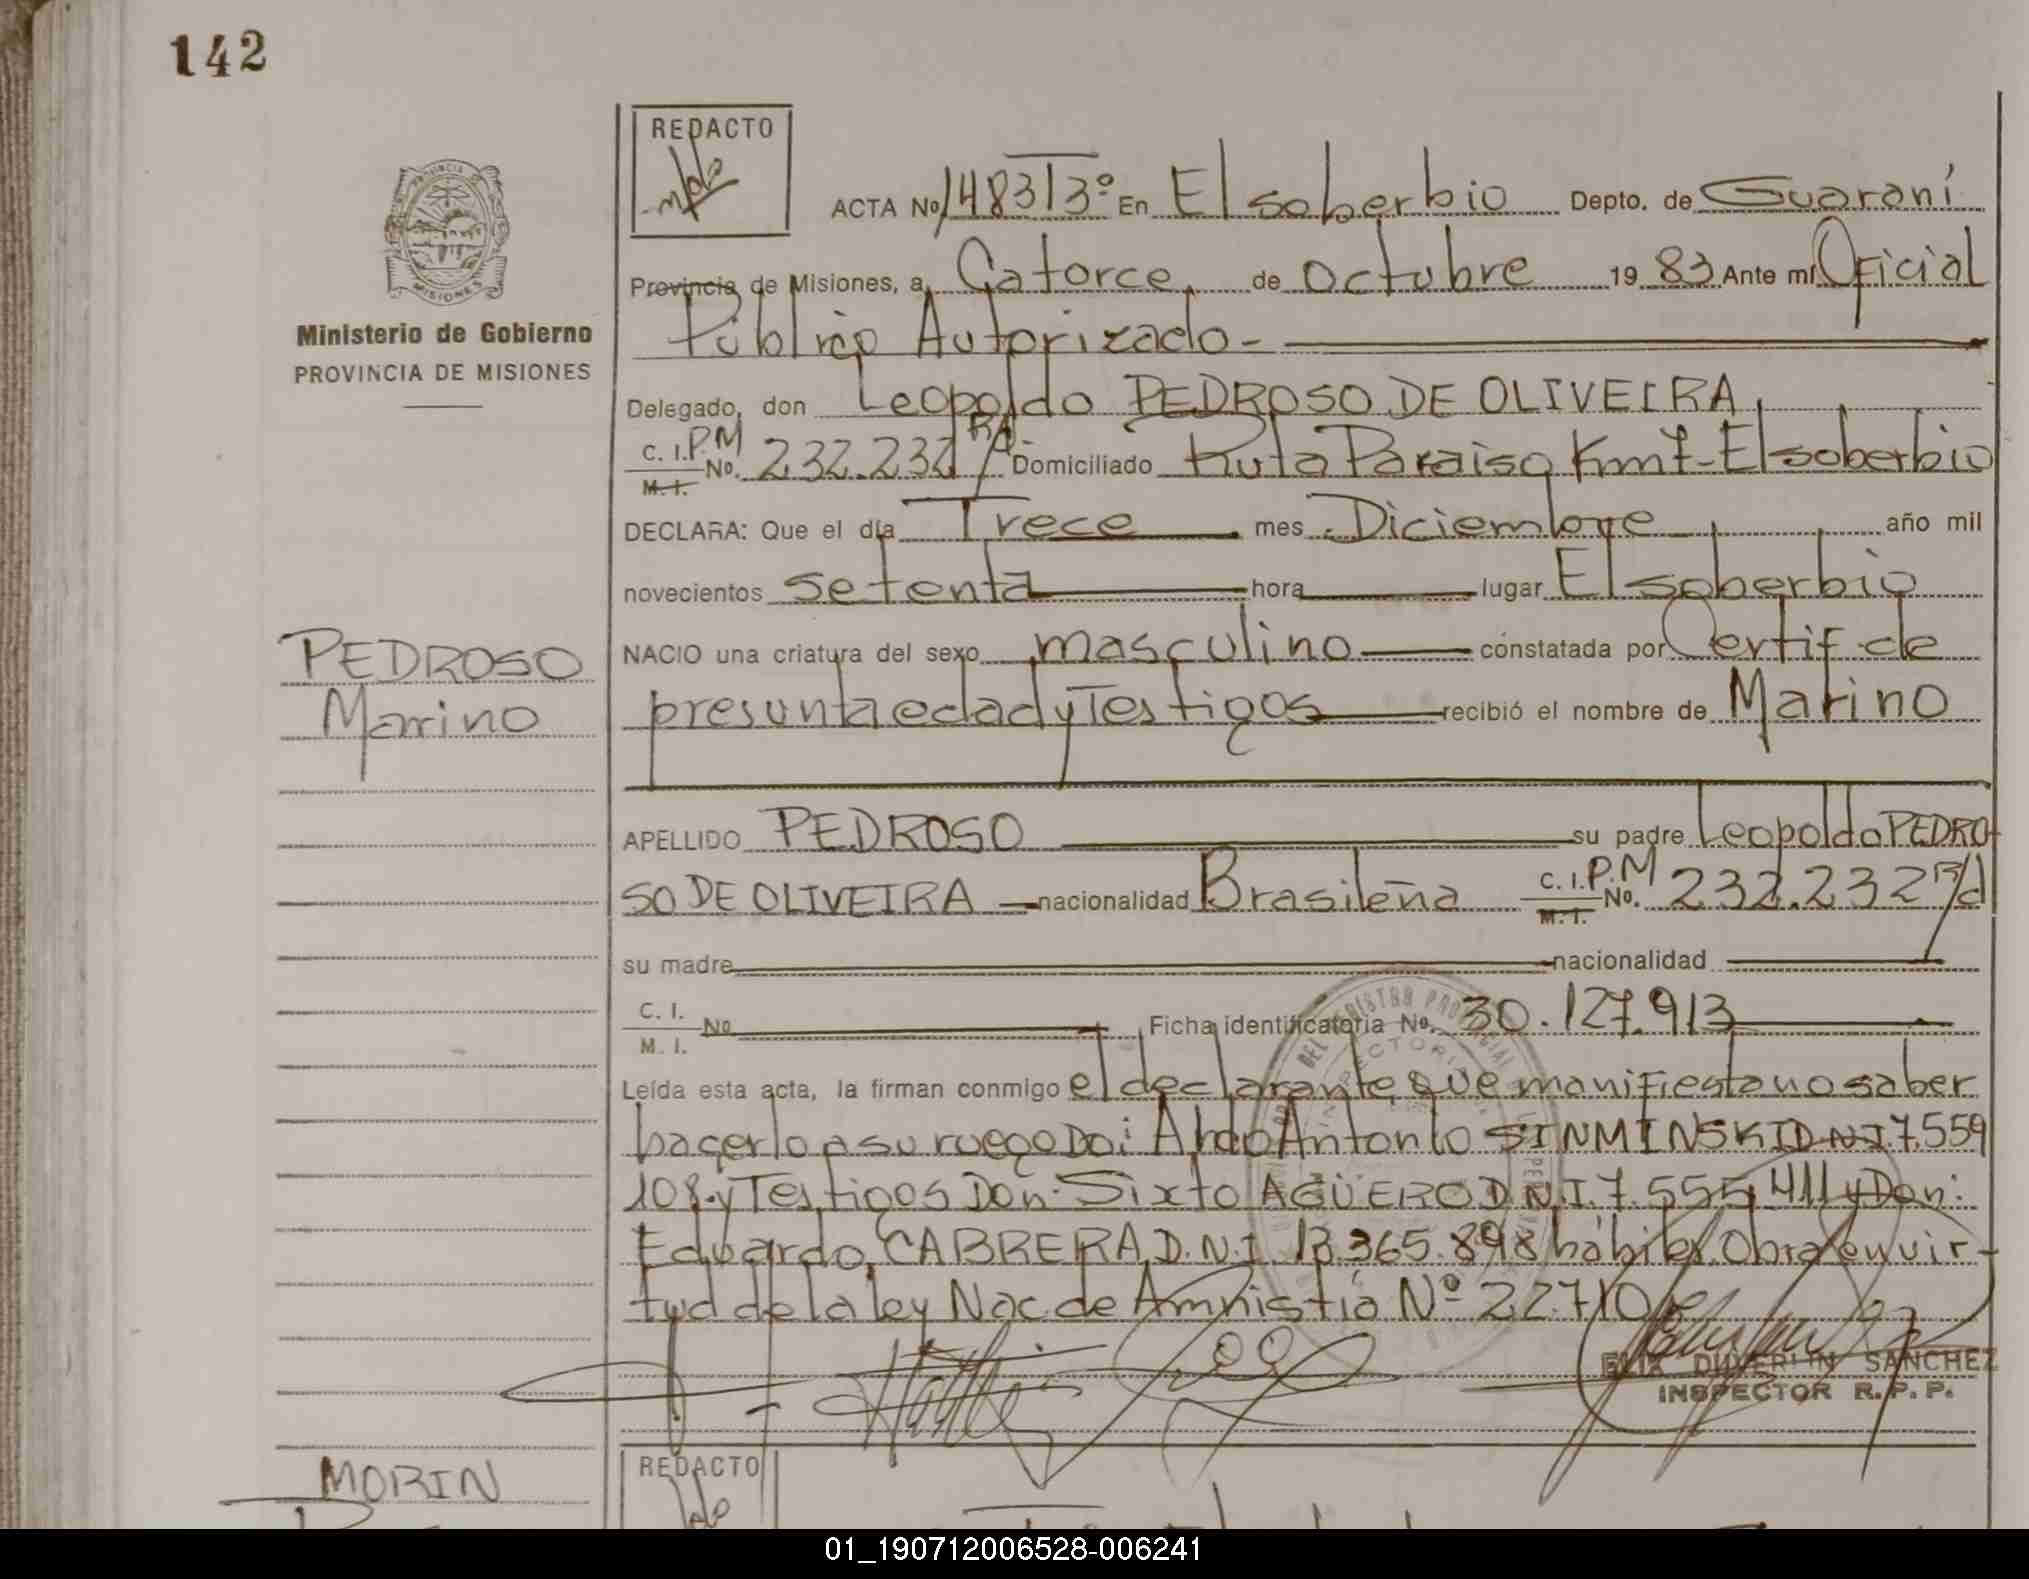 142
REDACTO
PROVINCIA DE
MISIONES
Ministerio de Gobierno
PROVINCIA DE MISIONES
ACTA No 1483 T 3º En El soberbio Depto. de Guaraní
Provincia de Misiones, a Catorce de Octubre 19 83 Ante mí Oficial
Público Autorizado-
Delegado, don Leopoldo PEDROSO DE OLIVEIRA
C. I. P.M
M. I. No. 232.232 Domiciliado Ruta Paraiso Km 7- El soberbio
DECLARA: Que el día Trece mes Diciembre año mil
novecientos setenta hora lugar El soberbio
PEDROSO
Marino
NACIO una criatura del sexo masculino constatada por Certif de
presunta edad y Testigos recibió el nombre de Marino
APELLIDO PEDROSO su padre Leopoldo PEDRO-
SO DE OLIVEIRA nacionalidad Brasileña C. I. P.M
M. I. No. 232.232
su madre nacionalidad
C. I.
M. I. No Ficha identificatoria No. 30.127.913
Leída esta acta, la firman conmigo el declarante, que manifiesta no saber
hacerlo a su ruego Don: Aldo Antonio SINMINSKI D.N.I. 7.559
108. y Testigos Don: Sixto AGÜERO D.N.I. 7.555.411 y Don:
Eduardo CABRERA D.N.I. 13.365.898 hábiles. Obra en vir-
tud de la ley Nac. de Amnistia Nº 22.710
SANCHEZ
INSPECTOR R. P. P.
MORIN
REDACTO
01_190712006528-006241